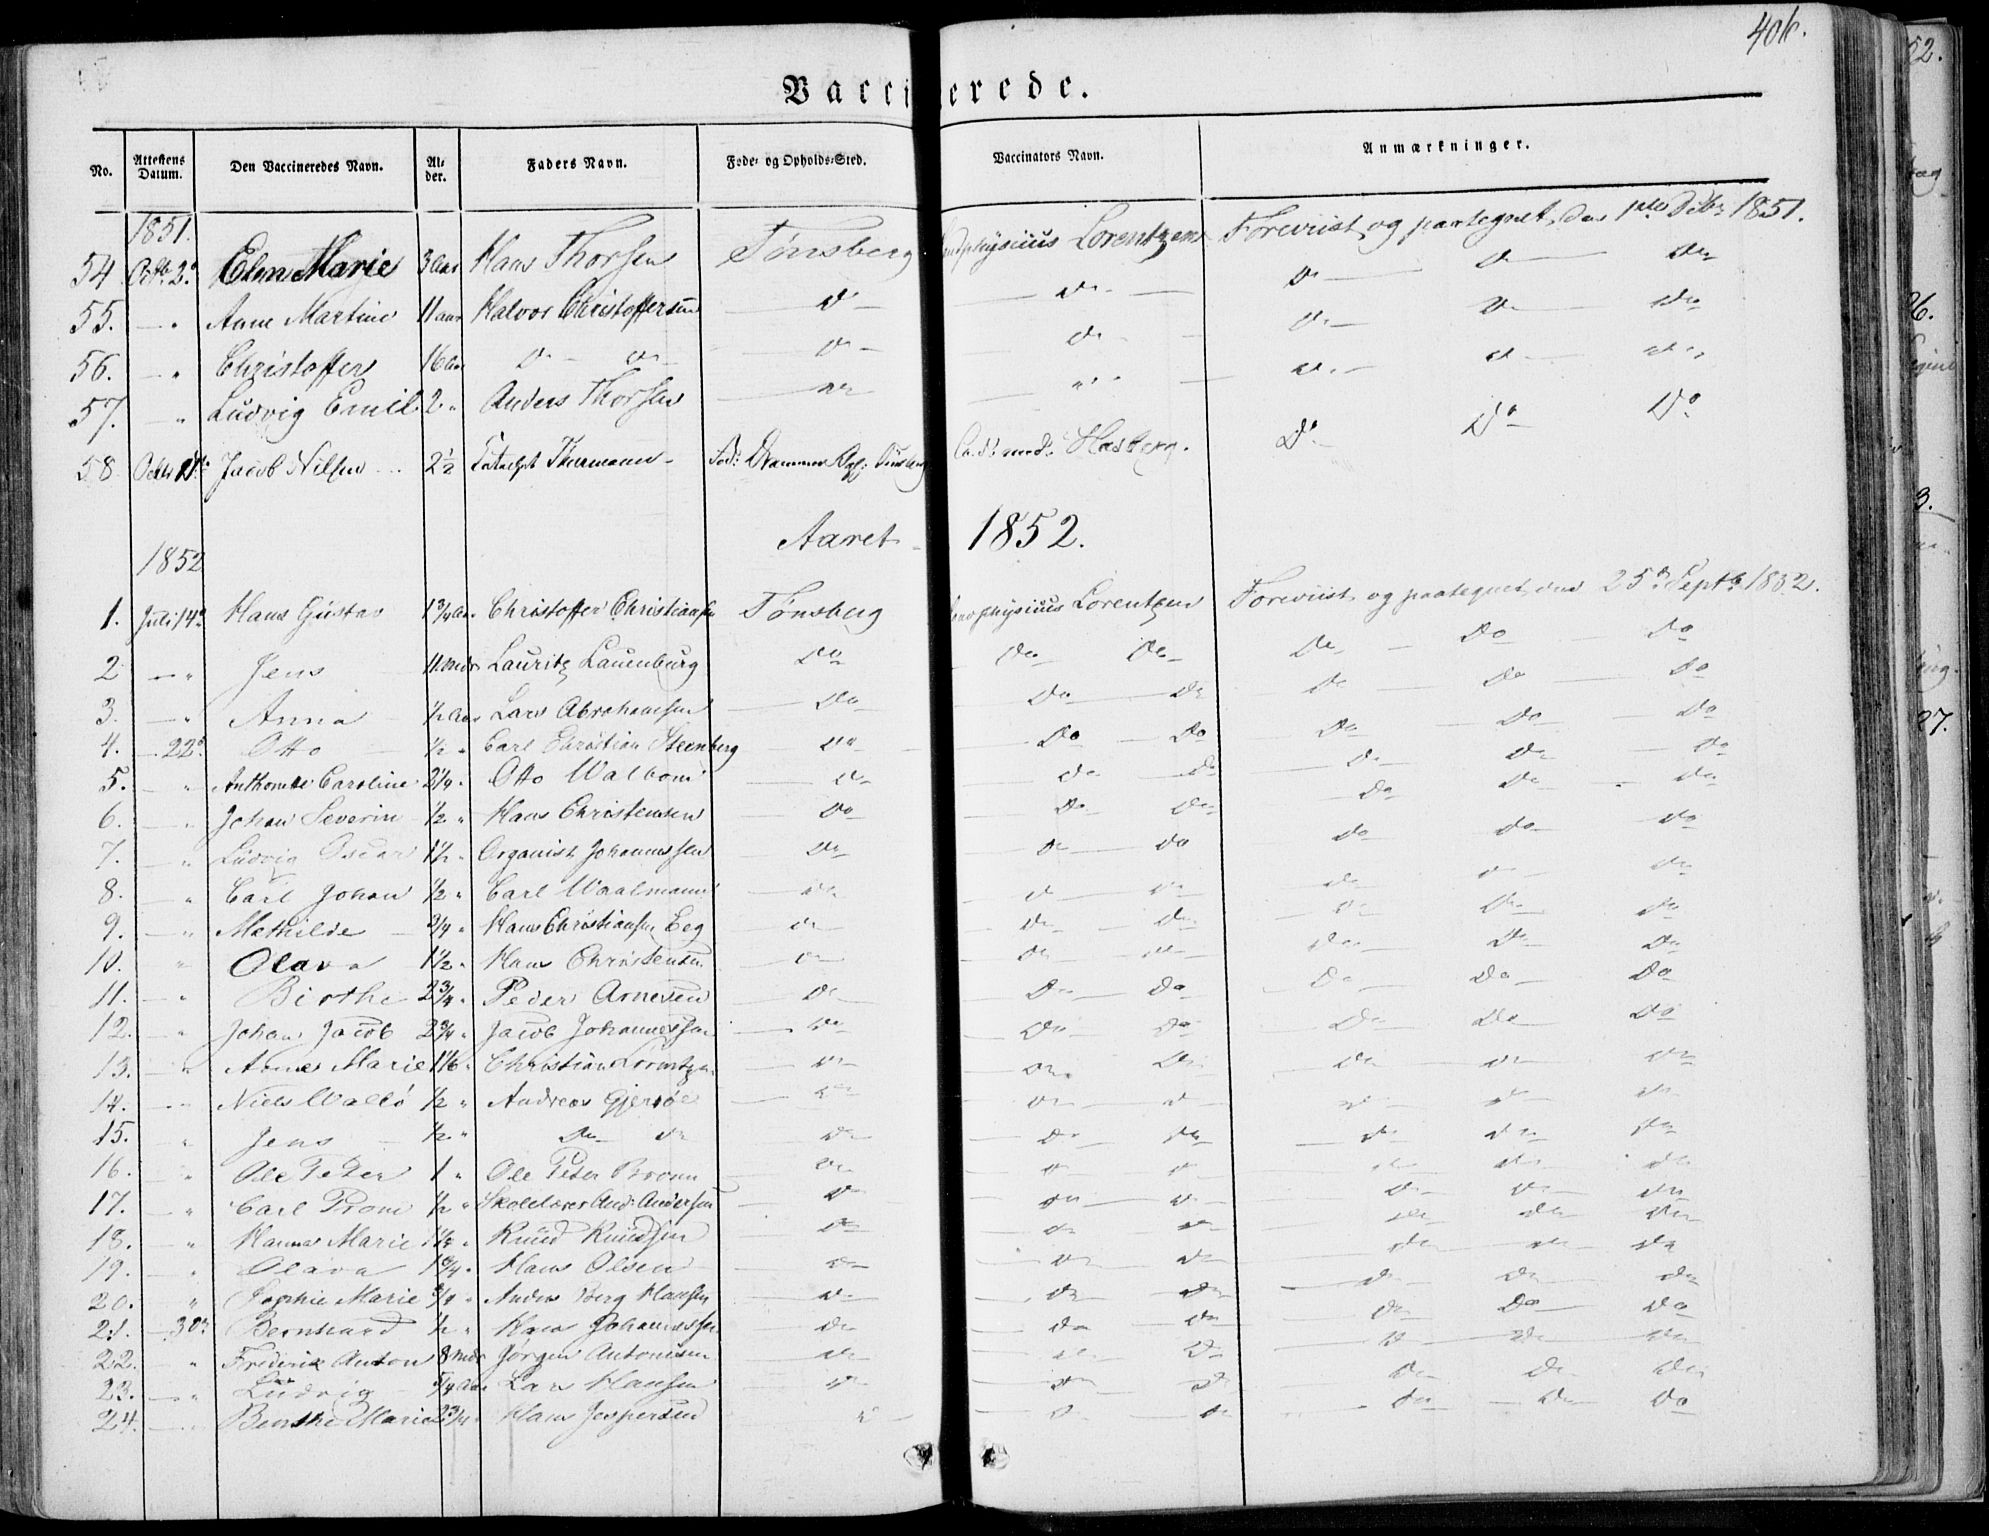 406.
Vaccinerede.
No. Attestens Datum. Den Vaccineredes Navn. Alder. Faders Navn. Føde- og Opholds-Sted. Vaccinators Navn. Anmærkninger.
1851.
54 2d Elen Marie 3 Aar Hans Thorsen Tønsberg Landphysicus Lorentzen Foreviist og paategnet den 1ste 1851.
55. — " Anne Martine 11 aar Halvor Christoffersen — Do — — Do — Do — Do — Do
56. — " Christoffer 16 Aar Do — Do — Do — — Do — Do — Do — Do
57. " Ludvig Emil 2 " Anders Thorsen — Do — " — Do — Do — Do
58 Jacob Nilsen 2½ Thurmann Fød: Drammen Tønsberg Cand: med: Do — Do — Do
Aaret 1852.
1852
1. Juli 14d Hans Gustav 1¾ Aar Christoffer Christiansen Tønsberg Landphysicus Lorentzen Foreviist og paategnet den 25d Septb 1852.
2 — " Jens 11 Mdr Lauritz Lauenburg Do — Do — Do — Do — Do — Do
3. — " Anna ½ Aar Lars Abrahamsen — Do — Do — Do — Do — Do — Do
4. — 22d Otto ½ " Carl Christian Steenberg Do — Do — Do — Do — Do — Do
5. — " Anthonette Caroline 2¼ " Otto Walbom — Do — Do — Do — Do — Do — Do
6. — " Johan Severin ½ " Hans Christensen — Do — Do — Do — Do — Do — Do
7. — " Ludvig Oscar 1½ " Organist Johannessen — Do — Do — Do — Do — Do — Do
8. — " Carl Johan ½ " Carl Waalmann — Do — Do — Do — Do — Do — Do
9. — " Mathilde ¾ " Hans Christiansen Eeg Do — Do — Do — Do — Do — Do
10. " Olava 1½ " Hans Christensen Do — Do — Do — Do — Do — Do
11. — " Birthe 2¾ " Peder Arnesen — Do — Do — Do — Do — Do — Do
12. — " Johan Jacob 2¾ " Jacob Johannessen — Do — Do — Do — Do — Do — Do
13. — " Anne Marie 1⅙ " Christian Lorentzen — Do — Do — Do — Do — Do — Do
14. — " Niels ½ " Andreas Gjersøe — Do — Do — Do — Do — Do — Do
15. " Jens ½ " Do — Do — Do — Do — Do — Do — Do — Do
16. — " Ole Peter 1 " Ole Peter — Do — Do — Do — Do — Do — Do
17. — " Carl ½ " Skolelærer And: Andersen — Do — Do — Do — Do — Do — Do
18. — " Hanna Marie Knud Knudsen — Do — Do — Do — Do — Do — Do
19. — " Olava 1¾ " Hans Olsen — Do — Do — Do — Do — Do — Do
20. " Sophie Marie ¾ " Anders Berg Hansen — Do — Do — Do — Do — Do — Do
21. — 30d Bernhard ½ " Hans Johannessen — Do — Do — Do — Do — Do — Do
22. " Frederik Anton 8 Mdr Jørgen Antonisen — Do — Do — Do — Do — Do — Do
23. — " Ludvig Aar Lars Hansen — Do — Do — Do — Do — Do — Do
24. — " Marie 2¾ " Hans Jespersen — Do — Do — Do — Do — Do — Do